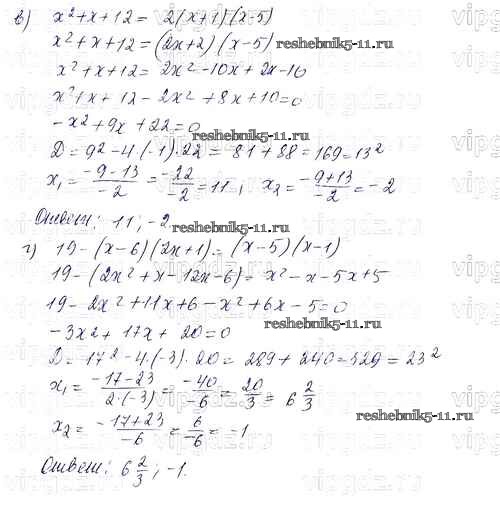 в) x²+x+12= 2(x+1)(x-5)
x²+x+12=(2x+2)(x-5)
reshebnik5-11.ru
x²+x+12= 2x²-10x+2x-10
x²+x+12-2x²+8x+10=0
-x²+9x+22=0
reshebnik5-11.ru
D=9²-4·(-1)·22= 81+88=169=13²
x₁= -9-13/-2 = -22/-2 =11; x₂= -9+13/-2 = -2
Ответ: 11; -2
reshebnik5-11.ru
г) 19-(x-6)(2x+1)=(x-5)(x-1)
19-(2x²+x-12x-6)= x²-x-5x+5
19-2x²+11x+6-x²+6x-5=0
reshebnik5-11.ru
-3x²+17x+20=0
D=17²-4·(-3)·20=289+240=529=23²
x₁= -17-23/2·(-3) = -40/-6 = 20/3 = 6 2/3
reshebnik5-11.ru
x₂= -17+23/-6 = 6/-6 = -1
Ответ: 6 2/3; -1.